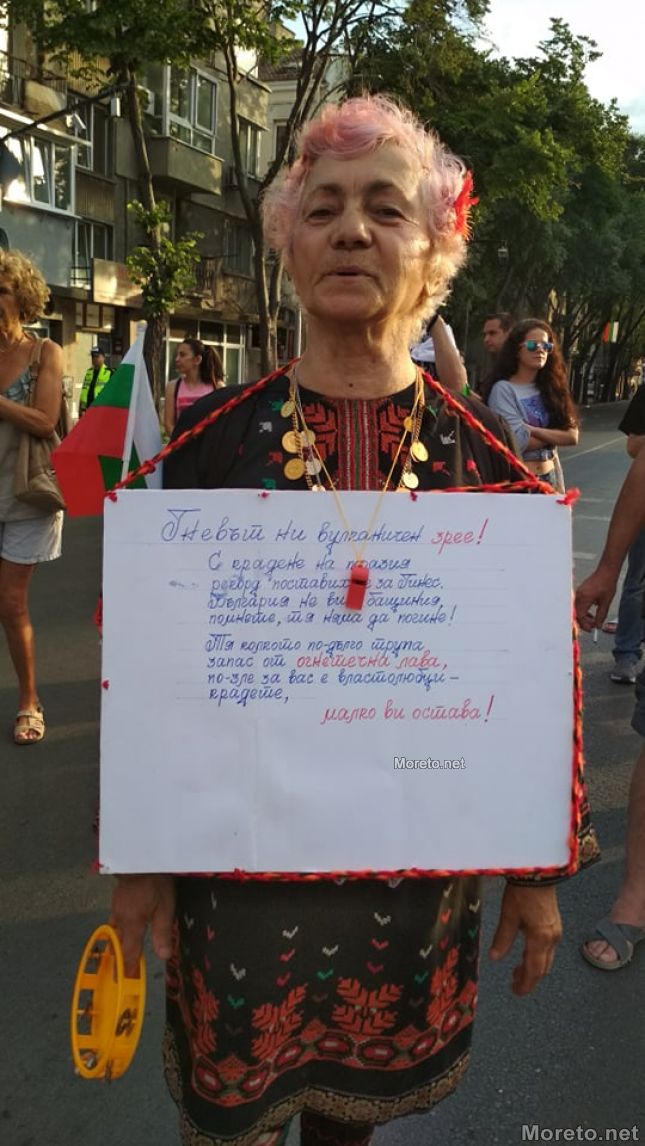 Гневът ни вулканичен зрее!
С крадене на поразия
рекорд поставихте за Гинес.
България не ви бащиния,
помнете, тя няма да погине!
Тя колкото по-дълго трупа
запас от огнетечна лава,
по-зле за вас е властолюбци -
крадете,
малко ви остава!
Moreto.net
Moreto.net